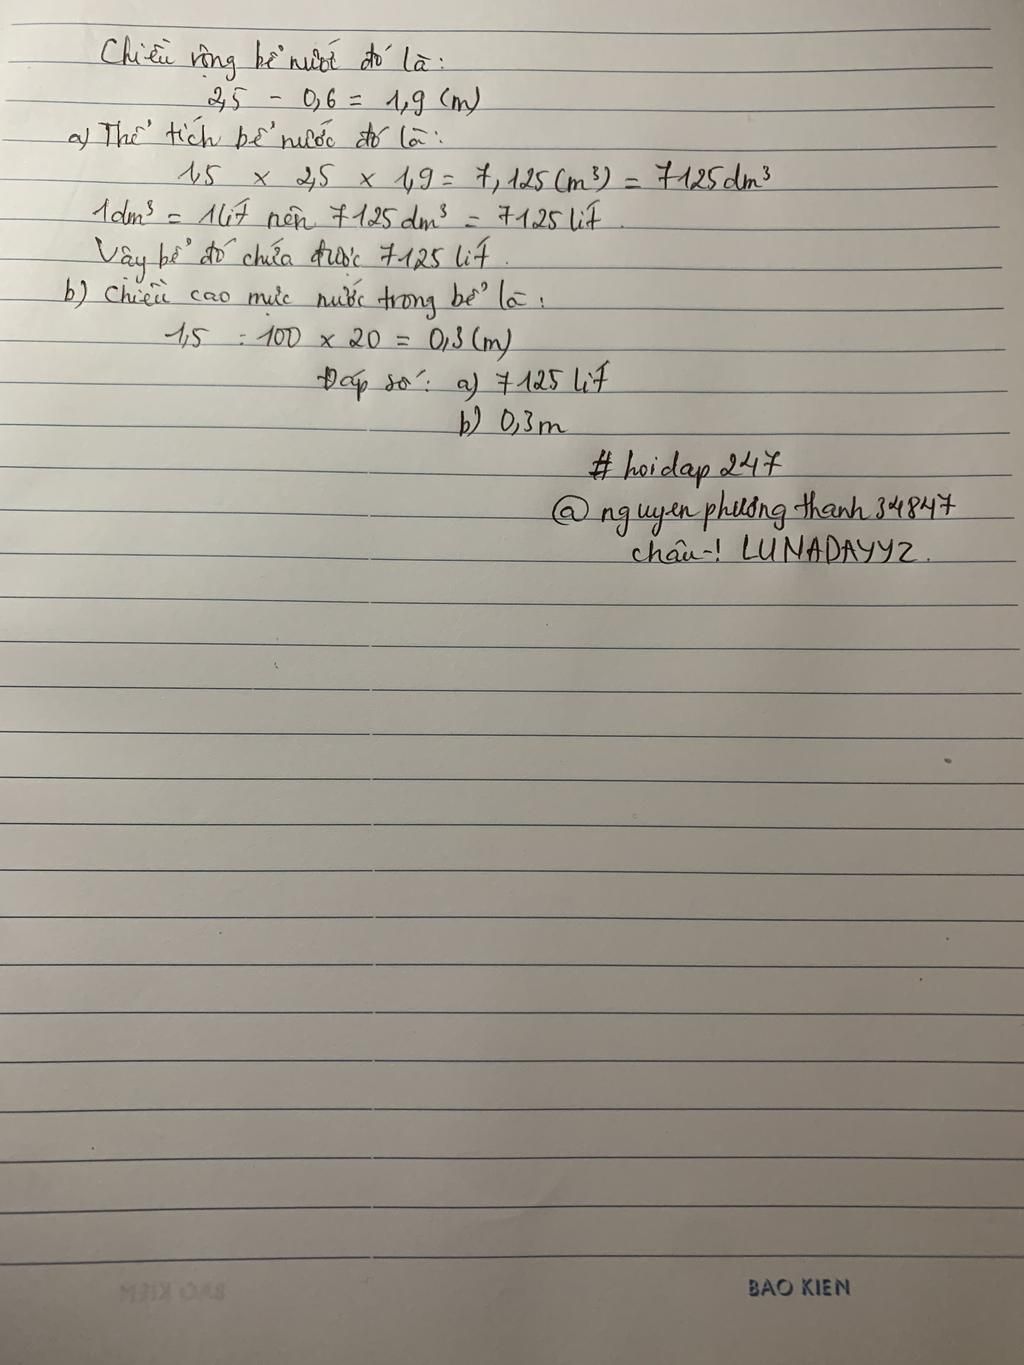 Chiều rộng bể nước đó là:
2,5 - 0,6 = 1,9 (m)
a) Thể tích bể nước đó là:
1,5 x 2,5 x 1,9 = 7,125 (m³) = 7125 dm³
1dm³ = 1 lít nên 7125 dm³ = 7125 lít.
Vậy bể đó chứa được 7125 lít.
b) Chiều cao mực nước trong bể là:
1,5 : 100 x 20 = 0,3 (m)
Đáp số: a) 7125 lít
b) 0,3m
# hoidap 247
@ nguyen phương thanh 34847
châu-! LUNADAYYZ.
BAO KIEN